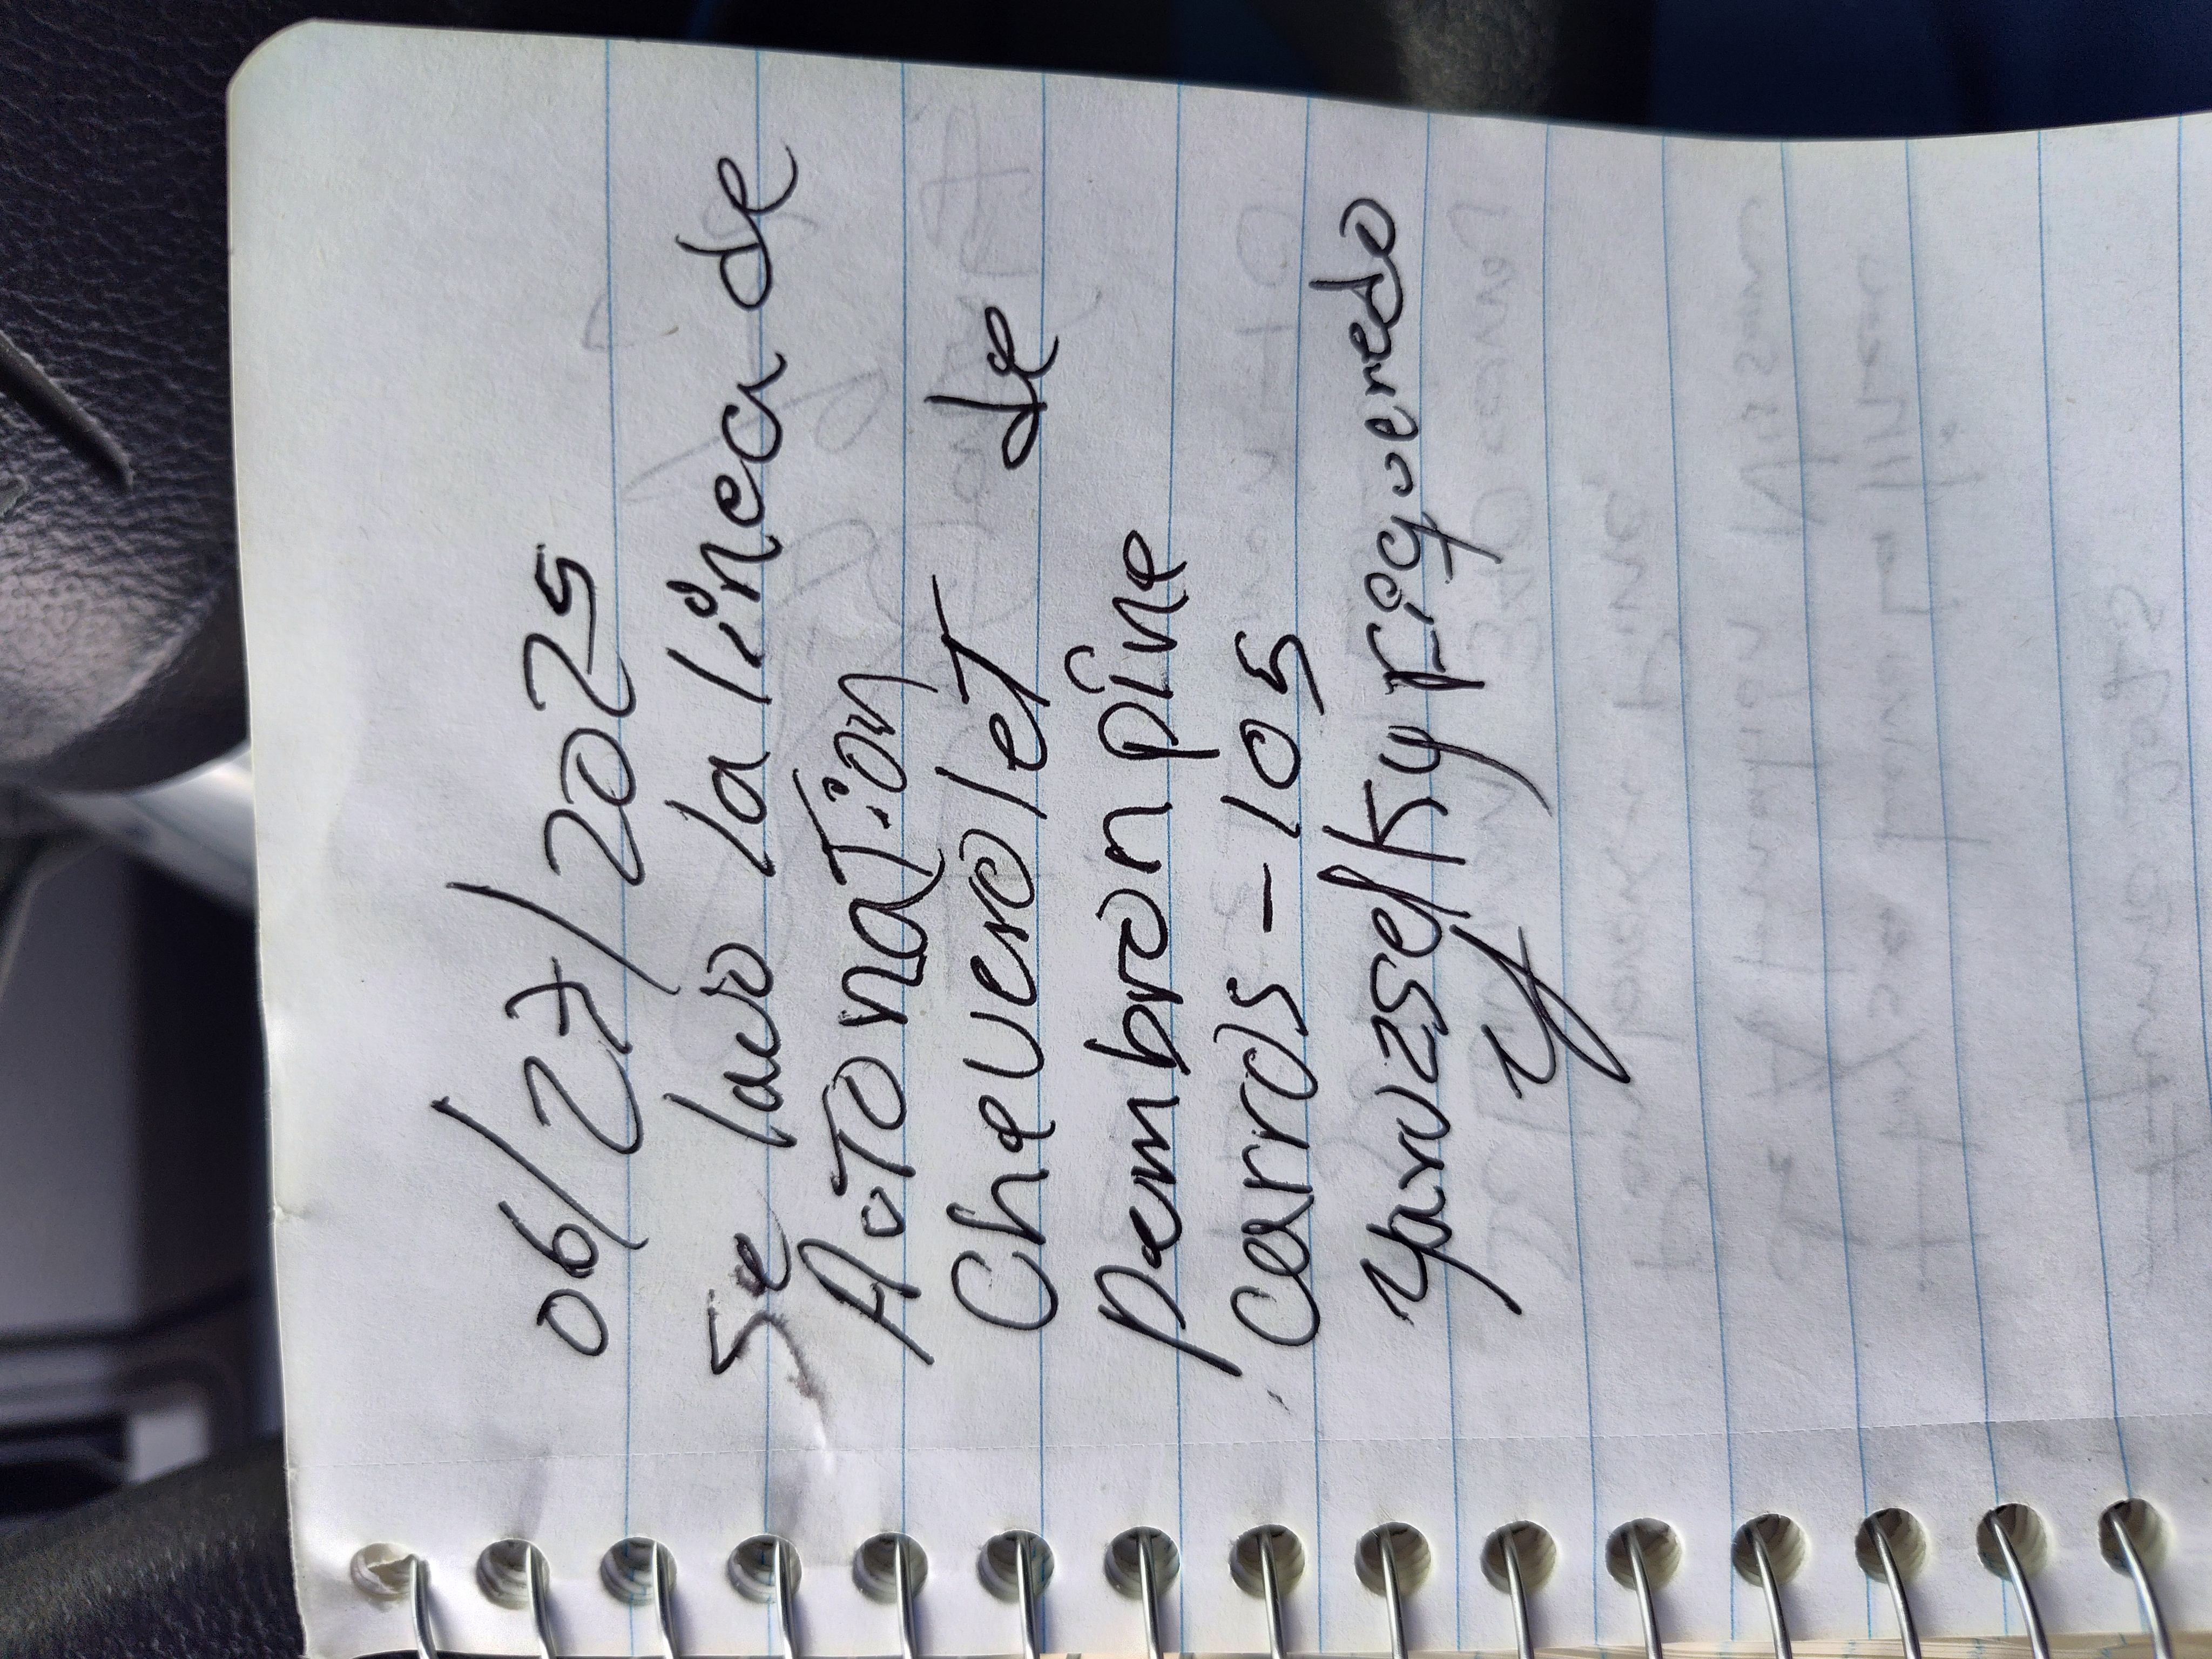 06/27/2025
se lavo la linea de
AuTonaTion
Cheverolet de
Pembron pine
carros - 105
yarozselky Figueredo
y